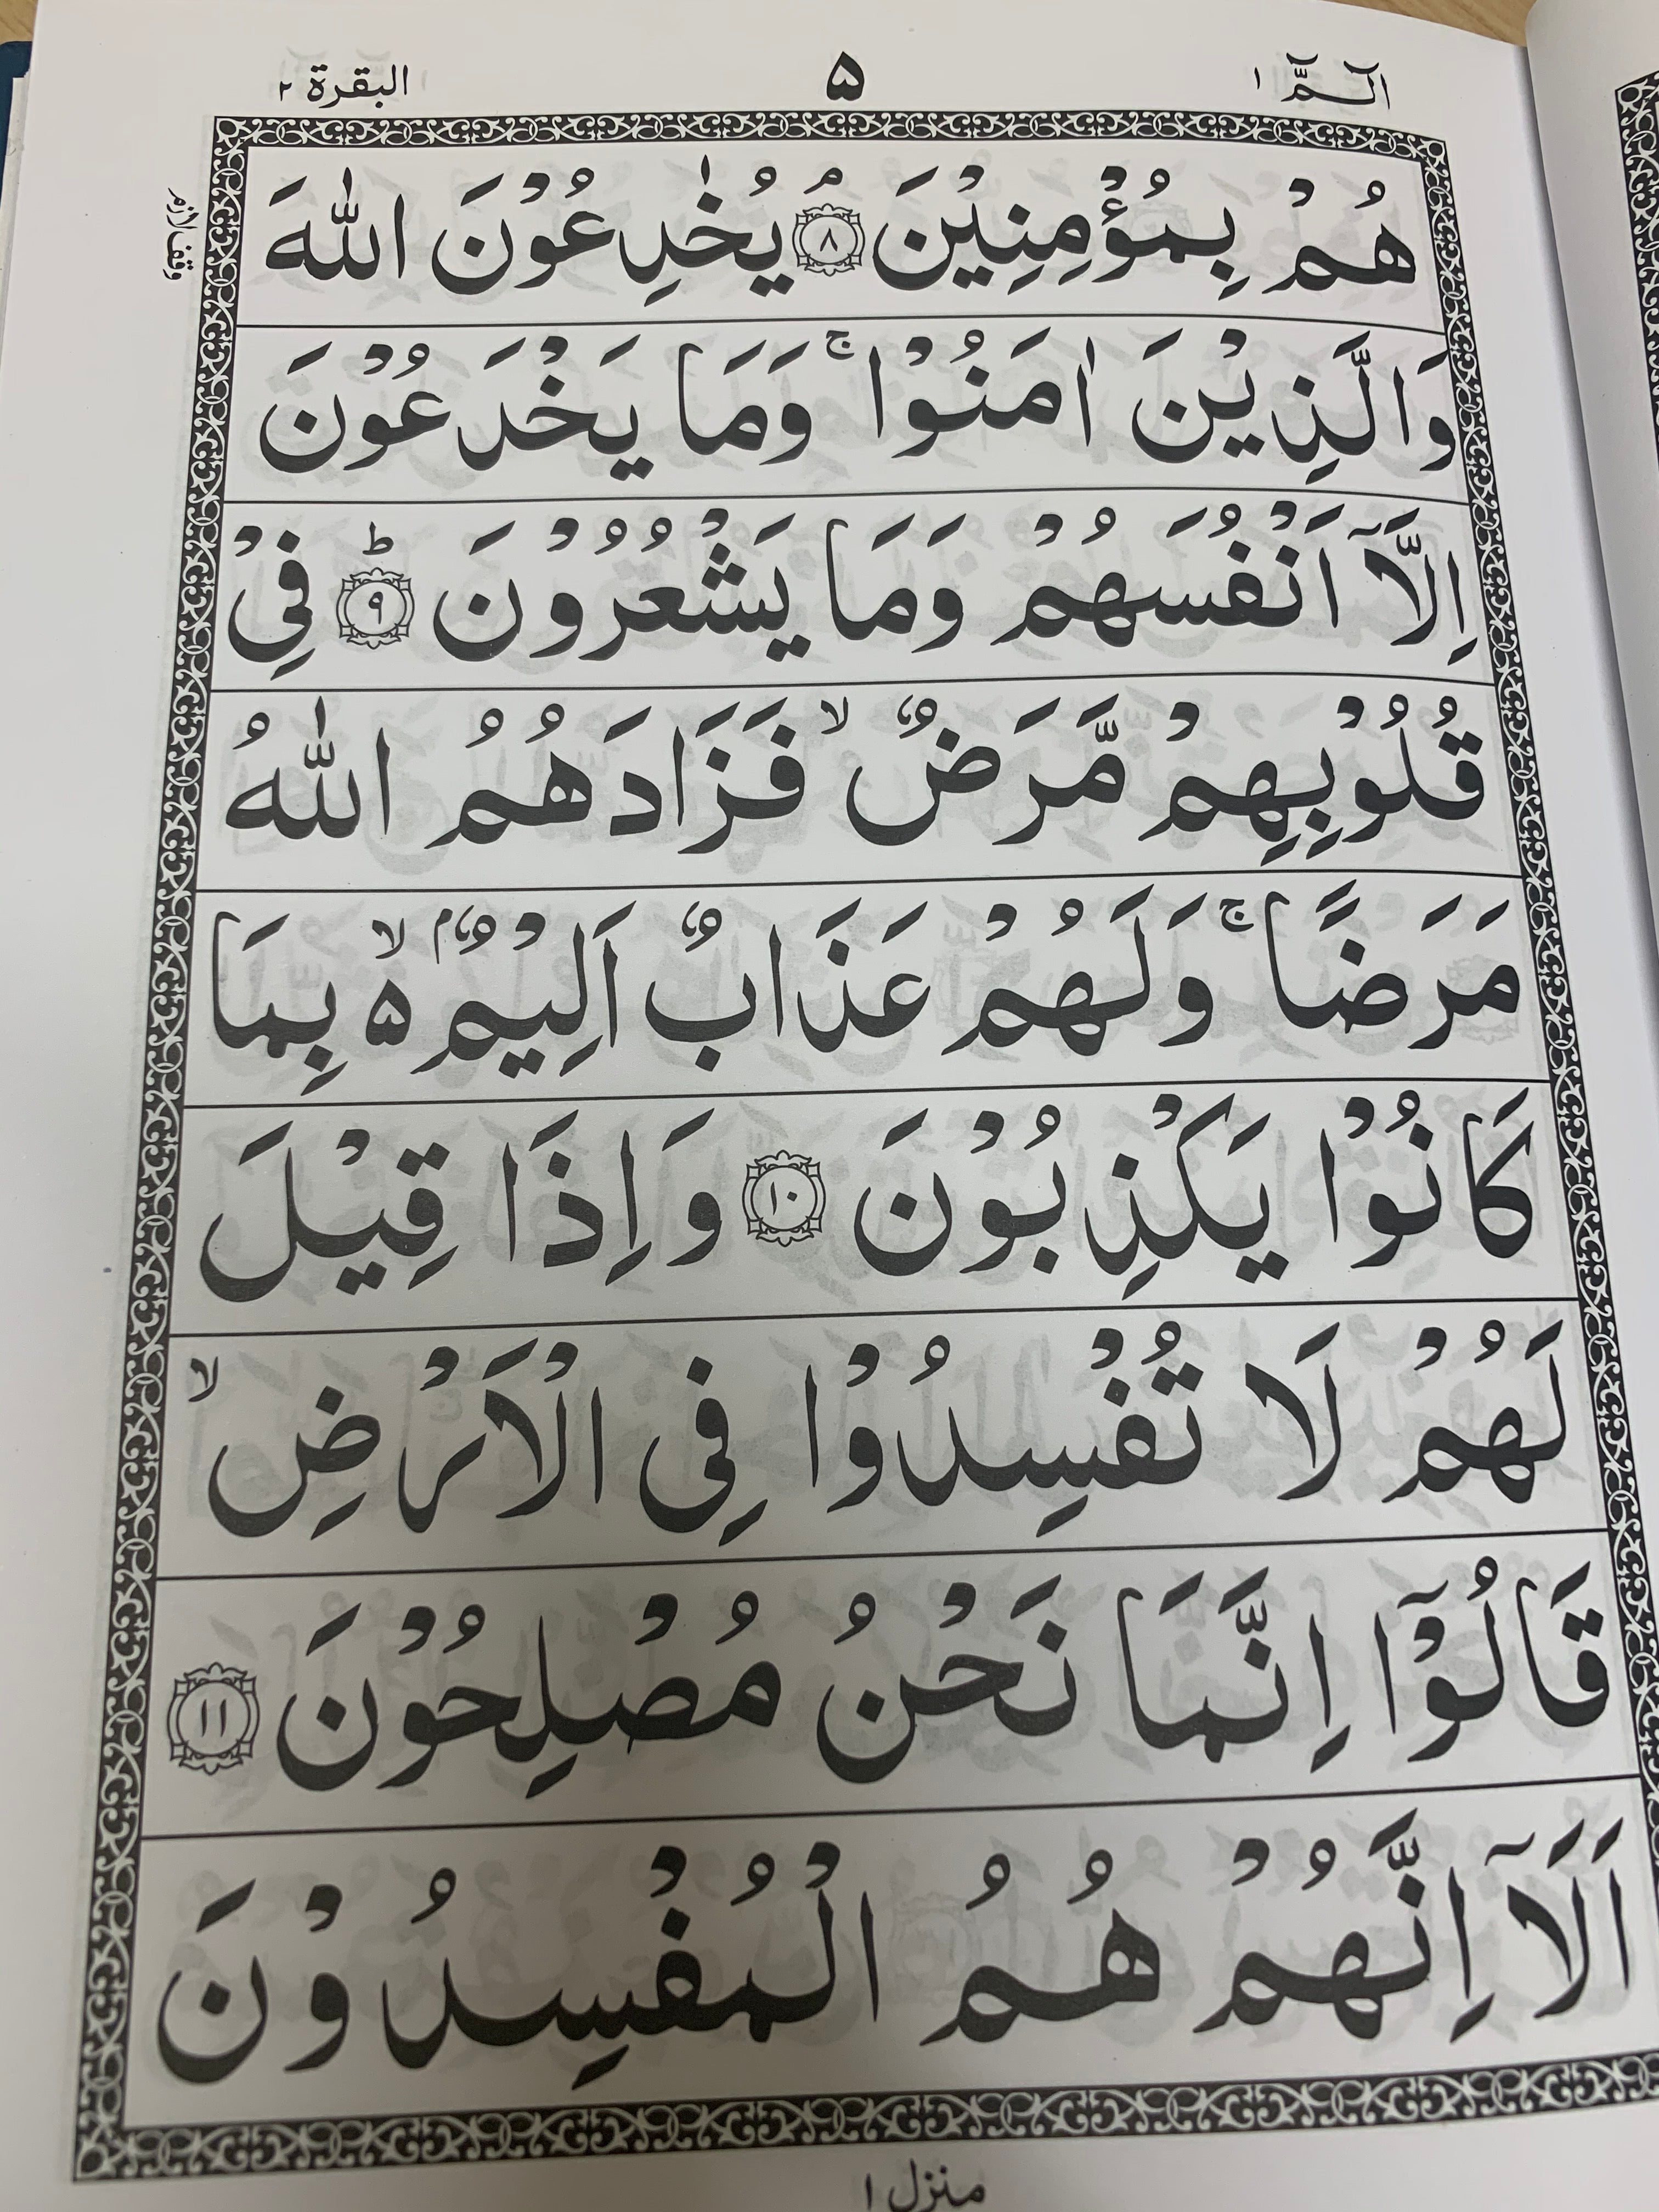 الٓـمّٓ ١ ۵ البقرة ٢
هُمْ بِمُؤْمِنِيْنَ ۘ ﴿٨﴾ يُخٰدِعُوْنَ اللّٰهَ
وقف لازم
وَالَّذِيْنَ اٰمَنُوْا ۚ وَمَا يَخْدَعُوْنَ
اِلَّآ اَنْفُسَهُمْ وَمَا يَشْعُرُوْنَ ؕ ﴿٩﴾ فِيْ
قُلُوْبِهِمْ مَّرَضٌ ۙ فَزَادَهُمُ اللّٰهُ
مَرَضًا ۚ وَلَهُمْ عَذَابٌ اَلِيْمٌۢ ۵ ۙ بِمَا
كَانُوْا يَكْذِبُوْنَ ﴿١٠﴾ وَاِذَا قِيْلَ
لَهُمْ لَا تُفْسِدُوْا فِى الْاَرْضِ ۙ
قَالُوْٓا اِنَّمَا نَحْنُ مُصْلِحُوْنَ ﴿١١﴾
اَلَآ اِنَّهُمْ هُمُ الْمُفْسِدُوْنَ
منزل ١